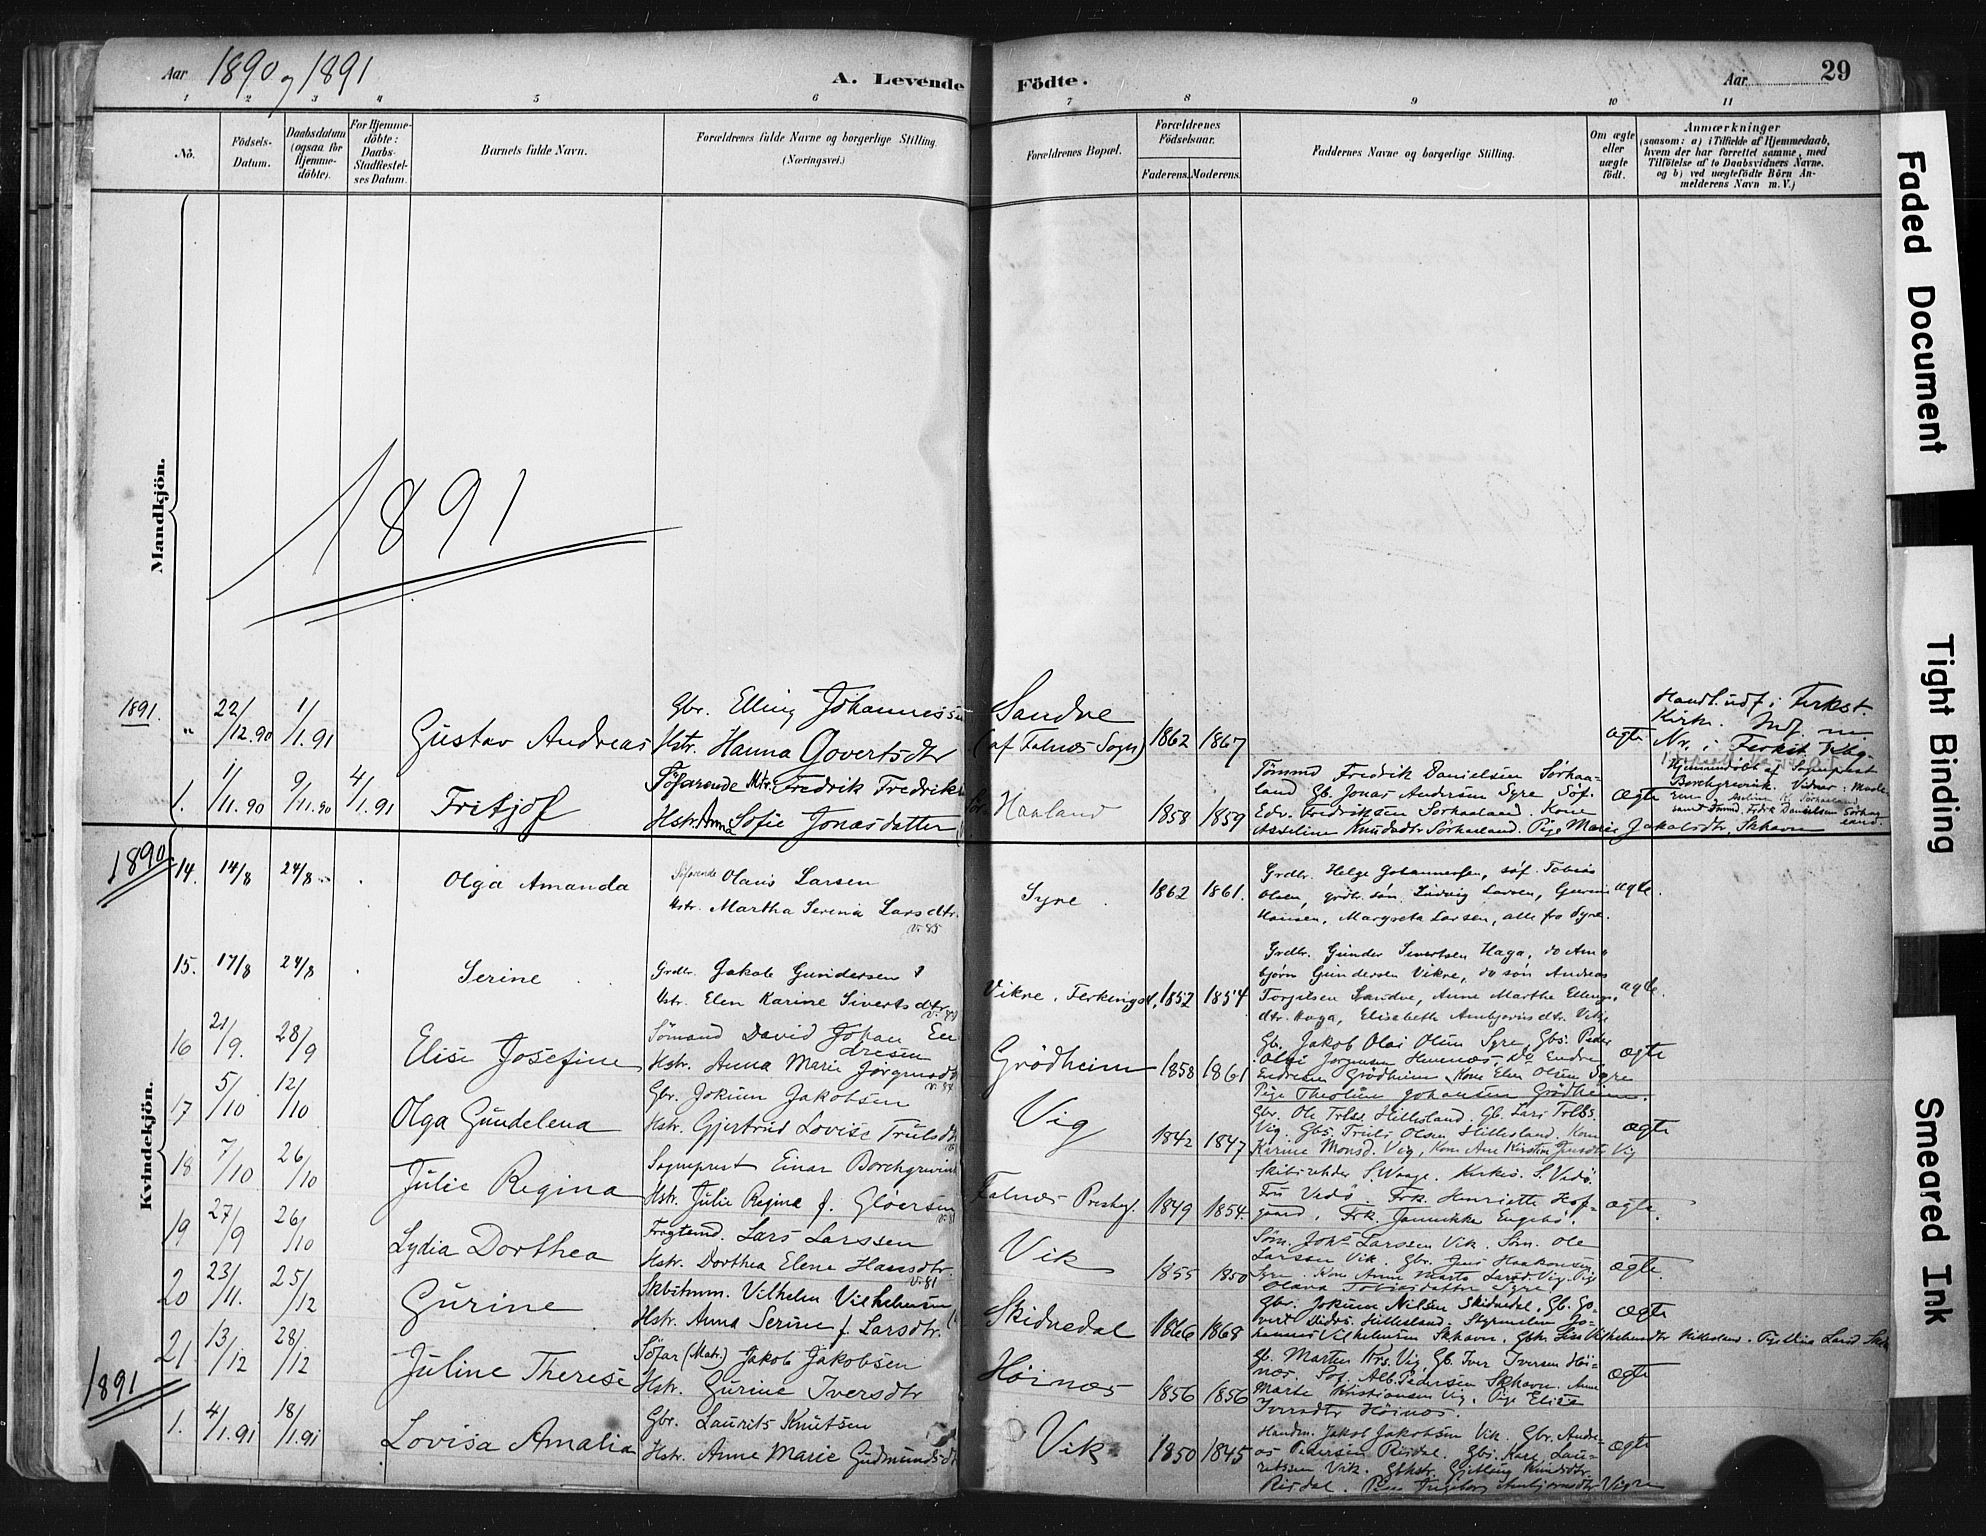 Aar 1890 og 1891
A. Levende Födte.
Aar
29
1 2 3 4 5 6 7 8 9 10 11
No.
Födsels-Datum.
Daabsdatum (ogsaa for Hjemmedöbte).
For Hjemmedöbte: Daabs-Stadfæstelses Datum.
Barnets fulde Navn.
Forældrenes fulde Navne og borgerlige Stilling. (Næringsvei.)
Forældrenes Bopæl.
Forældrenes Födselsaar.
Faderens. Moderens.
Faddernes Navne og borgerlige Stilling.
Om ægte eller uægte födt.
Anmærkninger
(saasom: a) i Tilfælde af Hjemmedaab, hvem der har forrettet samme, med Tilföielse af to Daabsvidners Navne. og b) ved uægtefödte Börn Anmelderens Navn m. V.)
Mandkjön.
1891
1891. " 22/12.90 1/1.91 Gustav Andreas
Gbr. Elling Johannessen
Hstr. Hanna Govertsdtr
Sandve (af Falnæs Sogn) 1862 1867 ægte
Handl. udf. i Ferkst. Kirke.
1. 1/11.90 9/11.90 4/1.91 Fritjof
Söfarende Mtr. Fredrik Fredriksen
Hstr. Anna Sofie Jonasdatter
Haaland 1858 1859
Tömmd Fredrik Danielsen Sörhaaland Gb. Jonas Andersen Syre Söf.
Edv. Fredriksen Sörhaaland. Kone
Asseline Knudsdtr Sörhaaland. Pige Marie Jakobsdtr. Skhavn
ægte
Hjemmedöbt af Sogneprest Borchgrevink. Vidner:
Kvindekjön.
1890
14. 14/8 24/8 Olga Amanda
Söfarende Olaus Larsen
Hstr. Martha Serena Larsdtr.
V. 85
Syre 1862 1861.
Grdbr. Helge Johannesen, söf. Tobias
Olsen, grdb. sön. Ludvig Larsen,
Hansen, Margreta Larsen, alle fra Syre.
ægte.
15. 17/8 24/8 Serine
Grdbr. Jakob Gundersen
Hstr. Elen Karine Sivertsdtr
Vikre, Ferkingst. 1852 1854
Grdbr. Gunder Sivertsen Haga, do Arnbjörn Gundersen Vikre, do sön Andreas
Torjelsen Sandve, Anne Marthe Ellings
dtr. Haga, Elisabeth Arnbjörnsdtr. Vikre
ægte.
16 21/9. 28/9 Elise Josefine
Sömand David Johan Endresen
Hstr. Anna Marie Jörgensdtr
Grödheim 1858 1861
Gb. Jakob Olai Olsen Syre, Gbs. Peder
Olai Jörgensen Hemnæs, Do Endre
Endresen Grödheim, Kone Elen Olsen Syre
Pige Theoline Johansen Grödheim.
ægte
17 5/10 12/10 Olga Gundelena
Gbr. Jokum Jakobsen
Hstr. Gjertrud Lovise Trulsdtr
Vig 1842 1847
Gbr. Ole Trlse. Hillesland. Gb. Lars Tolbs.
Vig. Gbs. Truls Olsen Hillesland. Kone
Karine Monsd. Vig, Kone Ane Kirstin Jensdtr Vig
ægte
18 7/10 26/10 Julie Regina
Sogneprest Einar Borchgrevink
Hstr. Julie Regina f. Glöersen
Falnæs Prestegd. 1849 1854.
Skibsreder S. Waage. Kirkes. S. Vedö.
Fru Vedö. Frk. Henriette Hofgaard. Frk. Jannikke Engebö.
ægte.
19 27/9 26/10 Lydia Dorthea
Fragtemd. Lars Larssen
Hstr. Dorthea Elene Hansdtr.
V. 81
Vik 1855 1850
Söm. Johs Larssen Vik. Söm. Ole
Larssen Vik. Gbr. Jens Haakonsen
Syre. Kone Anne Marta Larsd. Vig. Pige
Olava Tobiasdatter Syre.
ægte.
20 23/11. 25/12 Gurine
Skbstmm. Vilhelm Vilhelmsen
Hstr. Anna Serine f. Larsdtr.
Skidnedal 1866 1868
Gbr. Jokum Nilsen Skidnedal. Gb. Govert Didrs. Hillesland. Styrmden Johannes Vilhelmsen Skhavn.
ægte
21 13/12 28/12 Juline Therese
Söfar (Matr.) Jakob Jakobsen
Hstr. Gurine Iversdtr
Höinæs 1856 1856
Gb. Marten Krs. Vig, Gb. Iver Iversen Höinæs. Söf. Alb. Pedersen Skhavn. Anne
Marte Kristiansen Vig. Pige Elise
Iversdtr Höinæs.
ægte
1891
1. 4/1.91 18/1.91 Lovisa Amalia
Gbr. Laurits Knutsen
Hstr. Anne Marie Gudmundsdtr
Vik 1850 1845
Handm. Jakob Jakobsen Vik. Gbr. Andreas Pedersen Risdal. Gbs. Karl Lauritssen Vik. Gbhstr. Gjetlaug Knudsdtr.
Risdal. Pige Ingeborg Arnbjörnsdtr Vigre
ægte
Faded Document
Tight Binding
Smeared Ink